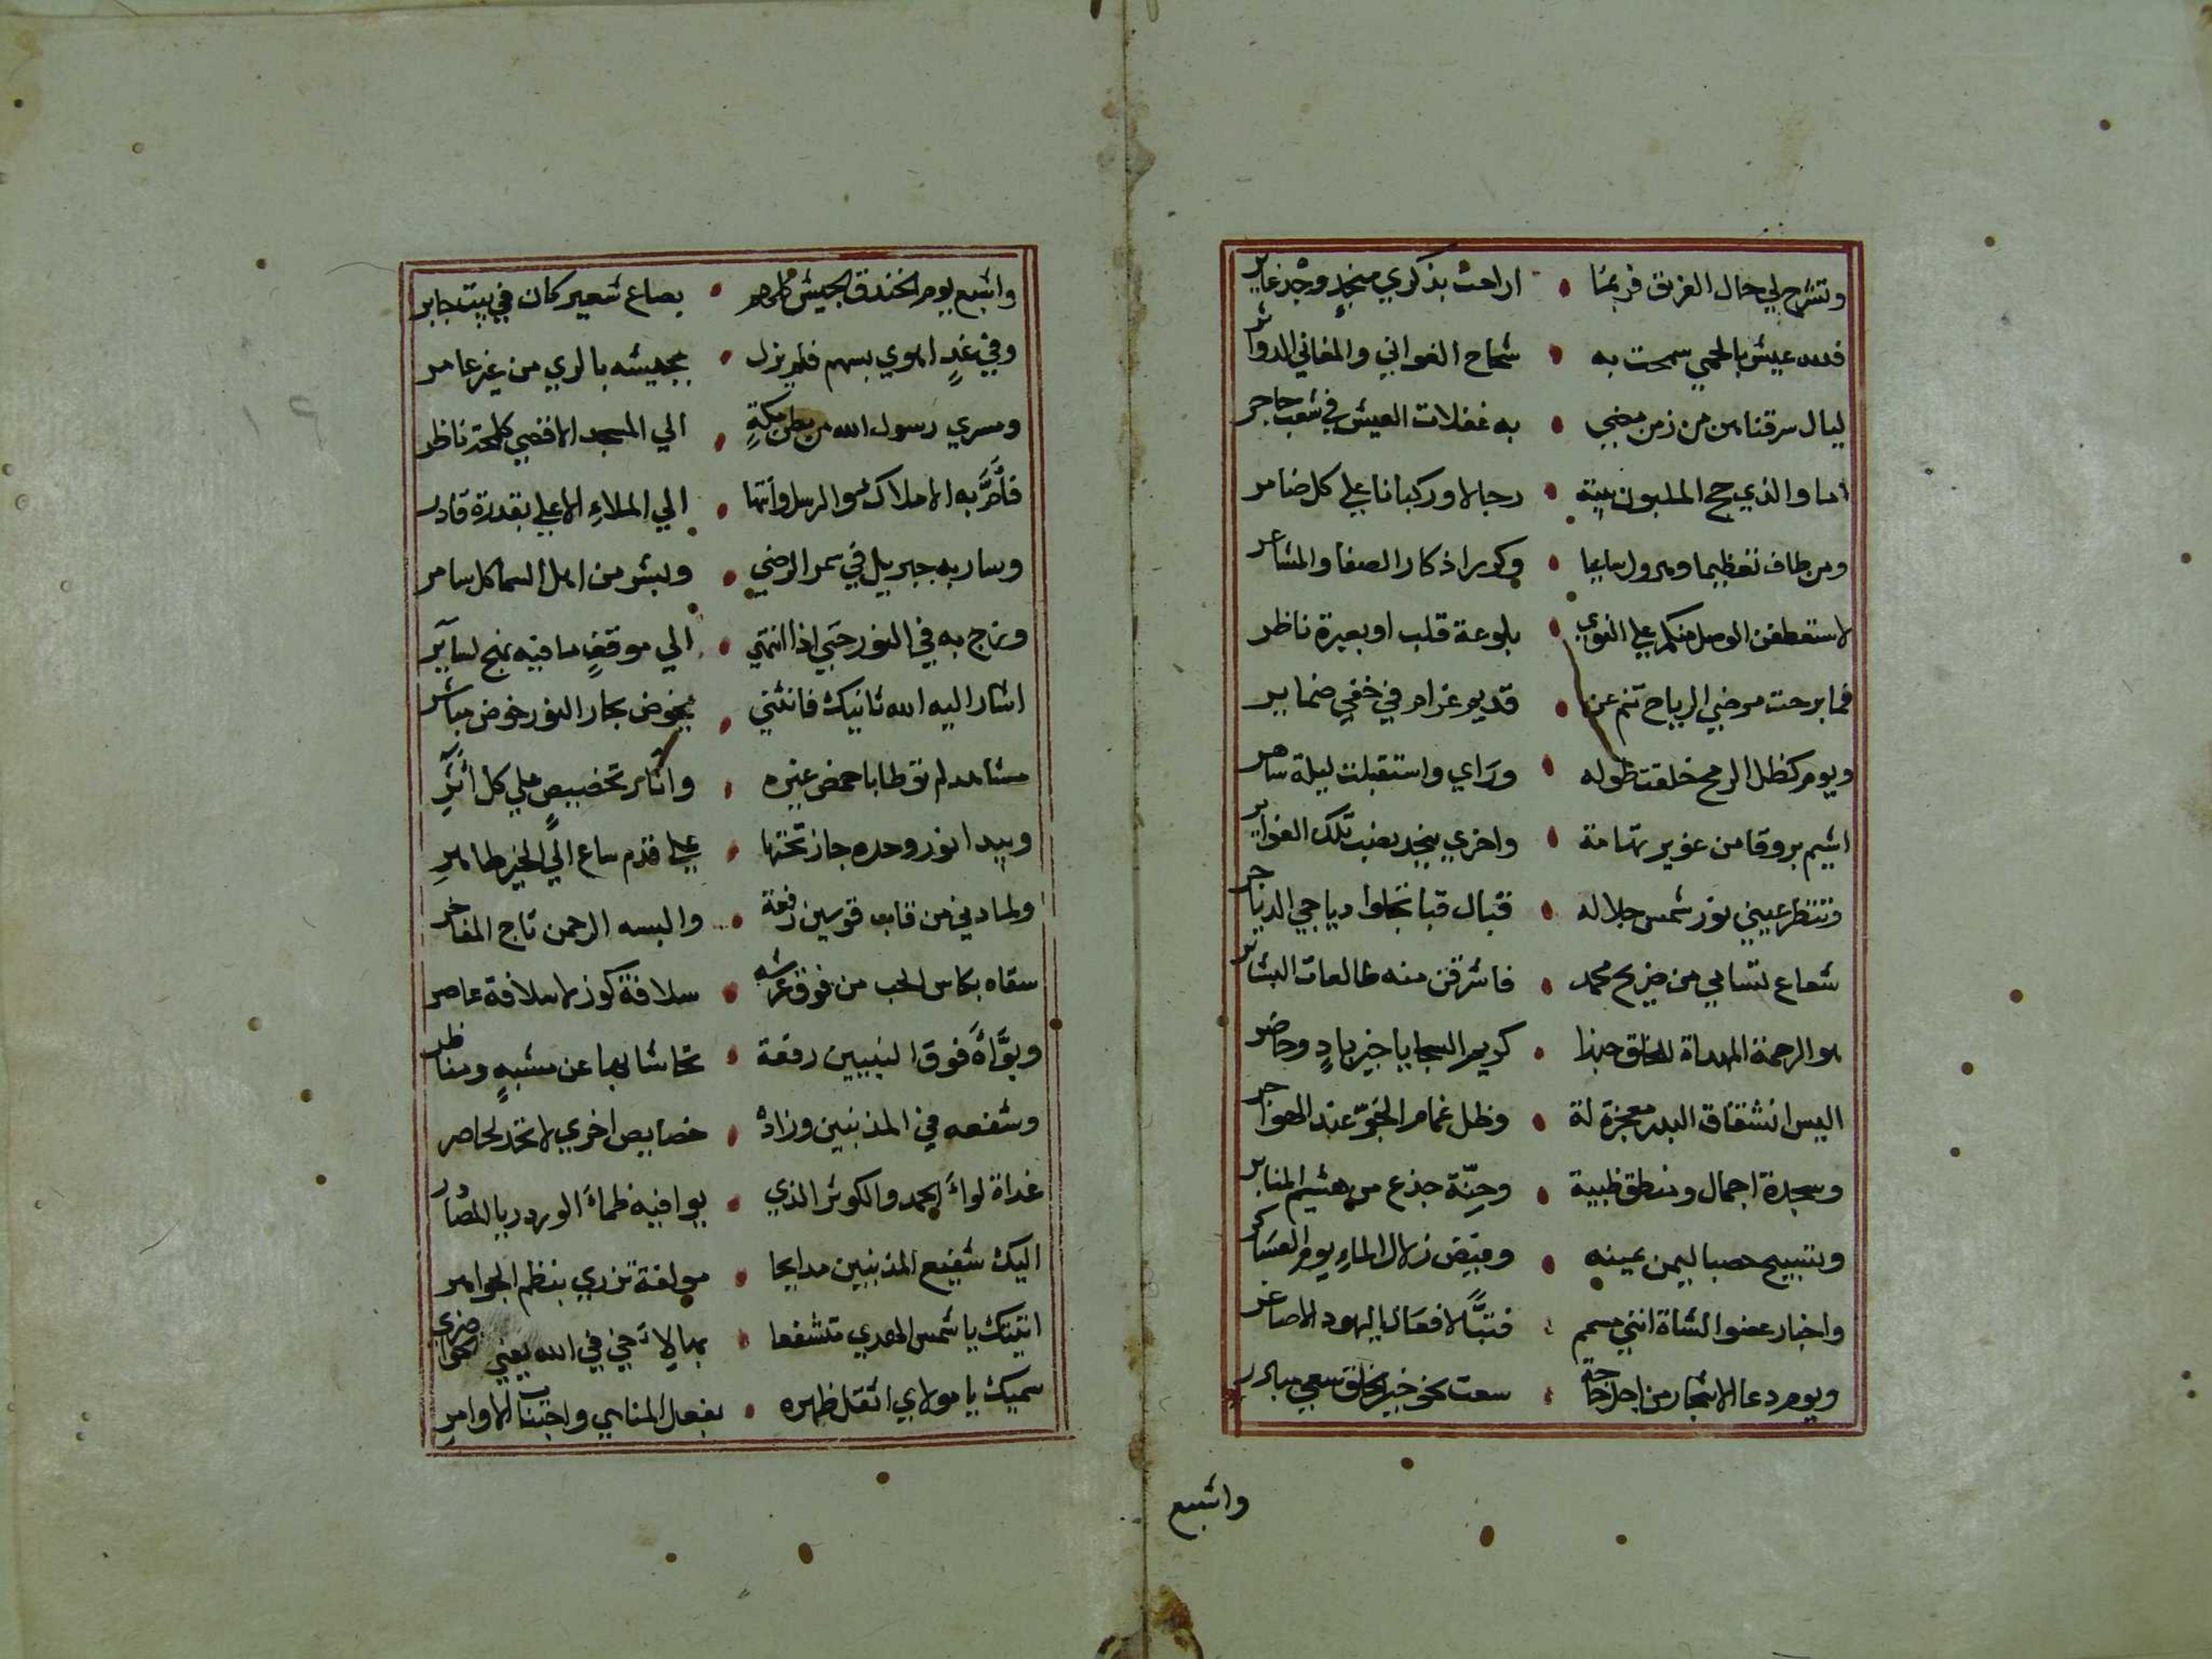 وتشرح لي حال الفريق فربما • اراحت بذكري منجد وجد غاير
فلله عيش بالحمي سمحت به • شماح الغواني والمغاني الدواثر
ليال سرقناهن من زمن مضي • به غفلات العيش في شعب حاجر
اما والذي حج الملبون بيته • رجالا وركبانا علي كل ضامر
ومن طاف تعظيما وهرول ساعيا • وكرر اذكار الصفا والمشاعر
لاستعطفن الوصل منكم علي النوي • بلوعة قلب او بعبرة ناظر
فما برحت مرضي الرياح تنم عن • قديم غرام في خفي ضماير
ويوم كظل الرمح خلفت طوله • وراي واستقبلت ليلة ساهر
اشيم بروقا من غوير تهامة • واخري بنجد بعد تلك الغواير
فتنظر عيني نور شمس جلاله • قبال قبا تجلوا دياجي الدياجر
شعاع تسامي من ضريح محمد • فاشرقن منه طالعات البشاير
هو الرحمة المهداة للخلق حبذا • كريم السجايا خير بادٍ وحاضر
اليس انشقاق البدر معجزة له • وظل غمام الجوّ عند الهواجر
وسجدة اجمال ومنطق ظبية • وحِنّة جذع من هشيم المنابر
وتسبيح حصبا ليمن يمينه • وفيض زلال الماءِ يوم العساكر
واخبار عضو الشاة انني مسمم • فتبًّا لافعال اليهود الاصاغر
ويوم دعا الاشجار من اجل حاجة • سعت نحو خير الخلق سعي مبادر
واشبع
واشبع يوم الخندق الجيش كلهم • بصاع شعير كان في بيت جابر
وفي غدٍ اهوي بسهم فلم يزل • بجيشه بالري من غير عامر
ومسري رسول الله من بطن مكةٍ • الي المسجد الاقصي كلمحة ناظر
فأمَّ به الاملاك والرسل وانتها • الي الملاءِ الاعلي بقدرة قادر
وسار به جبريل في سمر الرضي • وبشر من اهل السما كل سامر
وزج به في النور حتي اذا انتهي • الي موقفٍ ما فيه نهج لسآير
اشار اليه الله ثانيك فانثني • يخوض بحار النور خوض مباشر
مشاهد لم توطا باخمص غيره • واثار تخصيصٍ علي كل اثرِ
وبيدا نور وحده جاز تختها • علي قدم ساع الي الخير طاهرِ
ولما دني من قاب قوسين رفعة • والبسه الرحمن تاج المفاخر
سقاه بكاس الحب من فوق عرشه • سلافة كوز لا سلافة عاصر
وبوَّاهُ فوق النبيين رفعة • تحاشا بها عن مشبهٍ ومناظر
وشفعه في المذنبين وزاده • خصايص اخري لا تحد لحاصر
غداة لواءَ الحمد والكوثر الذي • يوافيه ظماءَ الورد ريا المصادر
اليك شفيع المذنبين مدايحا • مولفة تزري بنظم الجواهر
اتيتك يا شمس الهدي متشفعا • بها لاخي في الله يعني الحواضري
سميك يا مولاي اثقل ظهره • بفعل المناهي واجتناب الاوامر